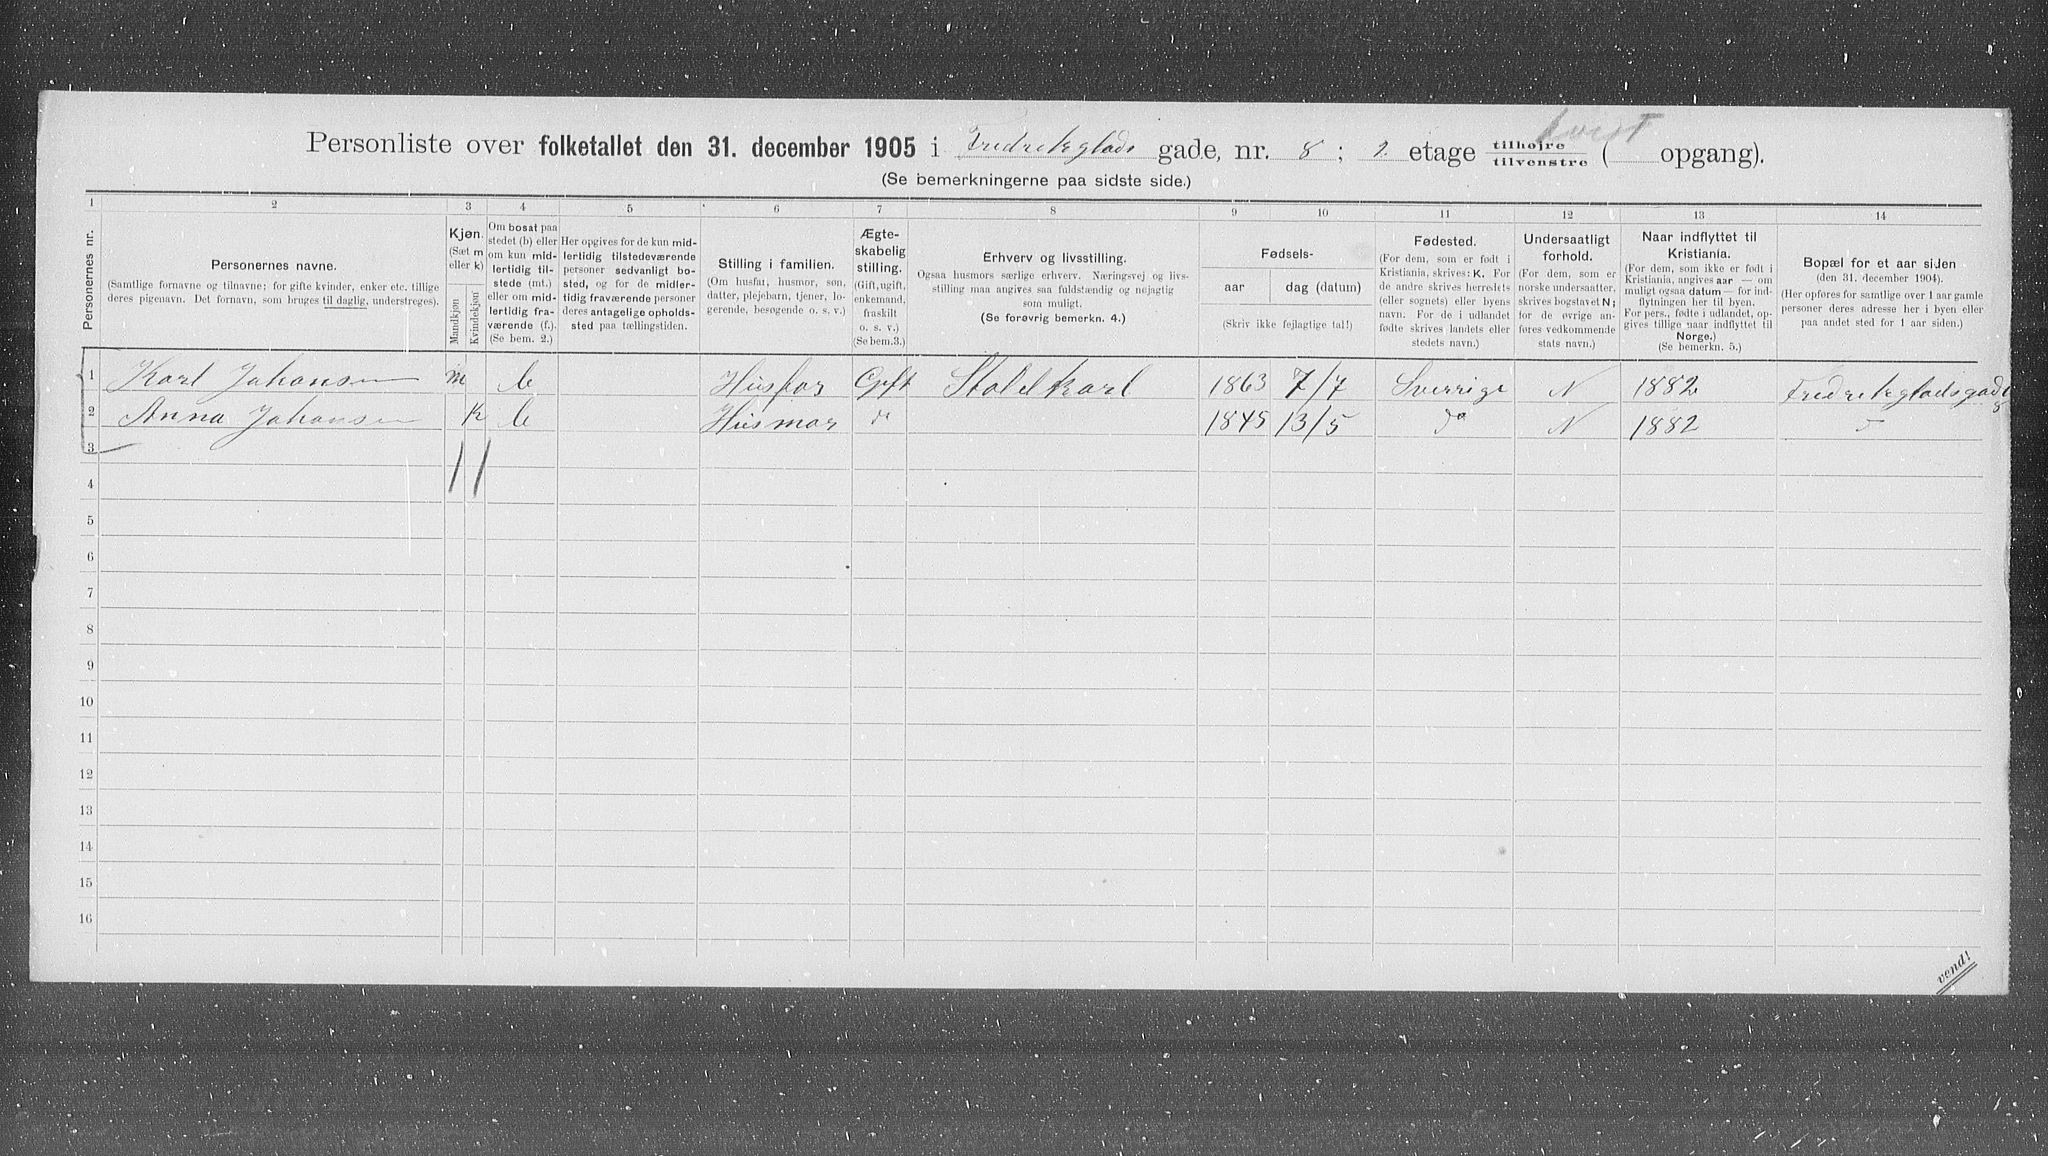 Kvist
Personliste over folketallet den 31. december 1905 i Fredriksglads gade, nr. 8; 2. etage tilhøjre tilvenstre ( opgang).
(Se bemerkningerne paa sidste side.)
1 2 3 4 5 6 7 8 9 10 11 12 13 14
Personernes nr.
Personernes navne.
(Samtlige fornavne og tilnavne; for gifte kvinder, enker etc. tillige
deres pigenavn. Det fornavn, som bruges til daglig, understreges).
Kjøn.
(Sæt m
eller k)
Mandkjøn
Kvindekjøn
Om bosat paa
stedet (b) eller
om kun mid-
lertidig til-
stede (mt.)
eller om mid-
lertidig fra-
værende (f.).
(Se bem. 2.)
Her opgives for de kun mid-
lertidig tilstedeværende
personer sedvanligt bo-
sted, og for de midler-
tidig fraværende personer
deres antagelige opholds-
sted paa tællingstiden.
Stilling i familien.
(Om husfar, husmor, søn,
datter, plejebarn, tjener, lo-
gerende, besøgende o. s. v.)
Ægte-
skabelig
stilling.
(Gift, ugift,
enkemand,
fraskilt
o. s. v.)
(Se bem.3.)
Erhverv og livsstilling.
Ogsaa husmors særlige erhverv. Næringsvej og livs-
stilling maa angives saa fuldstændig og nøjagtig
som muligt.
(Se forøvrig bemerkn. 4.)
Fødsels-
aar dag (datum)
(Skriv ikke fejlagtige tal!)
Fødested.
(For dem, som er født i
Kristiania, skrives: K. For
de andre skrives herredets
(eller sognets) eller byens
navn. For de i udlandet
fødte skrives landets eller
stedets navn.)
Undersaatligt
forhold.
(For dem, som er
norske undersaatter,
skrives bogstavet N;
for de øvrige an-
føres vedkommende
stats navn.)
Naar indflyttet til
Kristiania.
(For dem, som ikke er født i
Kristiania, angives aar — om
muligt ogsaa datum — for ind-
flytningen her til byen.
For pers., fødte i udlandet, op-
gives tillige naar indflyttet til
Norge.)
(Se bemerkn. 5.)
Bopæl for et aar siden
(den 31. december 1904).
(Her opføres for samtlige over 1 aar gamle
personer deres adresse her i byen eller
paa andet sted for 1 aar siden.)
1 Karl Johansen m b Husfar Gift Staldkarl 1863 7/7 Sverrige N 1882 Fredriksgladsgade 8
2 Anna Johansen k b Husmor do 1845 13/5 do N 1882
3
4
5
6
7
8
9
10
11
12
13
14
15
16
vend!